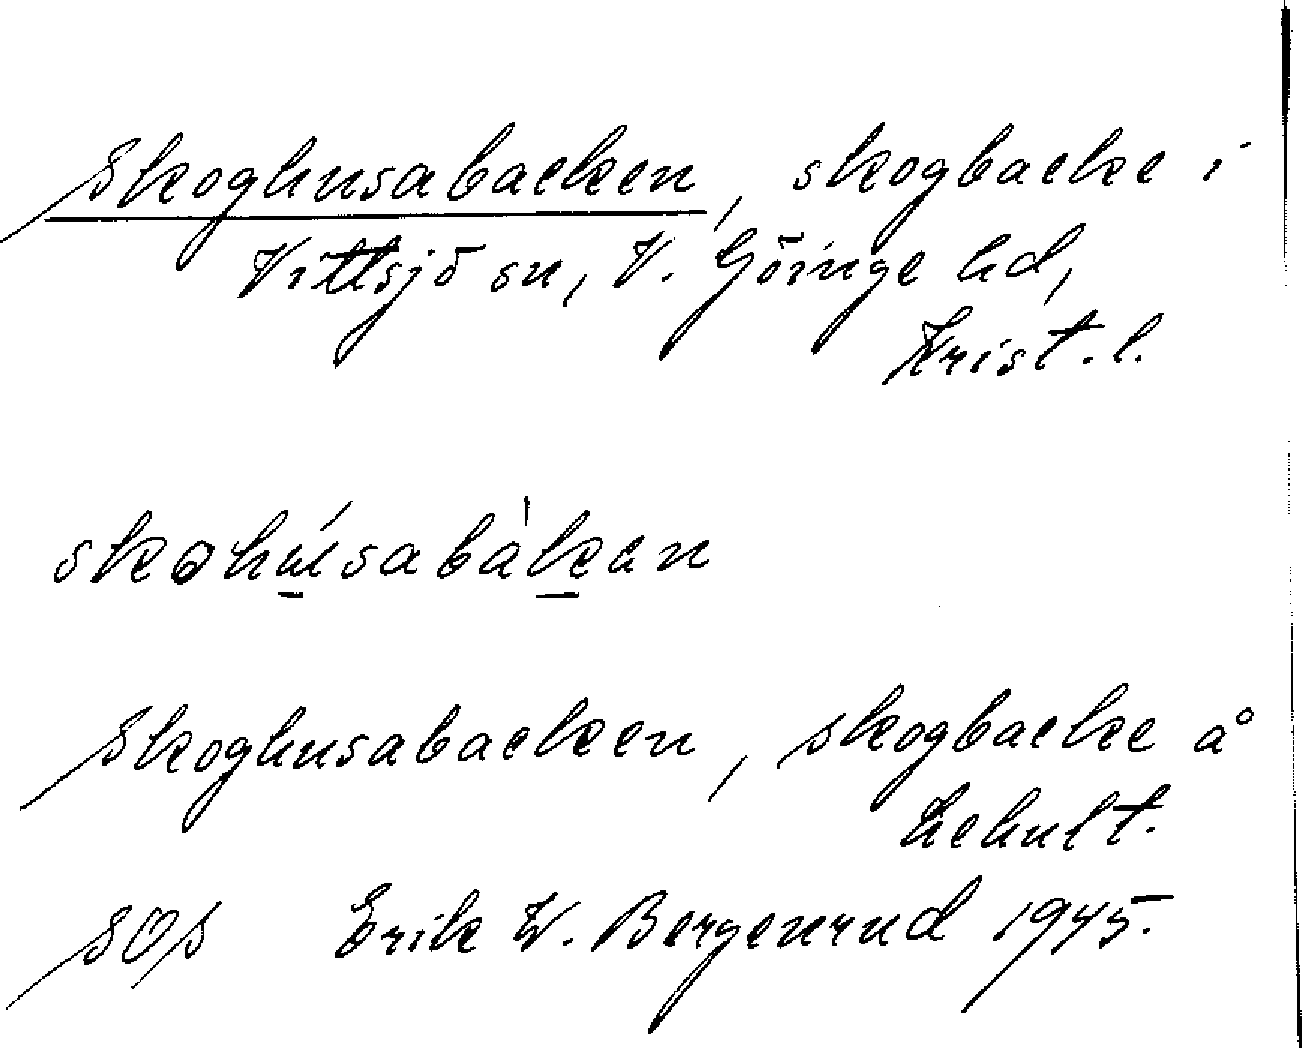 Skoghusabacken, skogbacke i
Vittsjö sn, V. Göinge hd,
Krist. l.
skohúsabàkan
Skoghusabacken, skogbacke å
Lehult.
SOS Erik W. Bergenrud 1945.